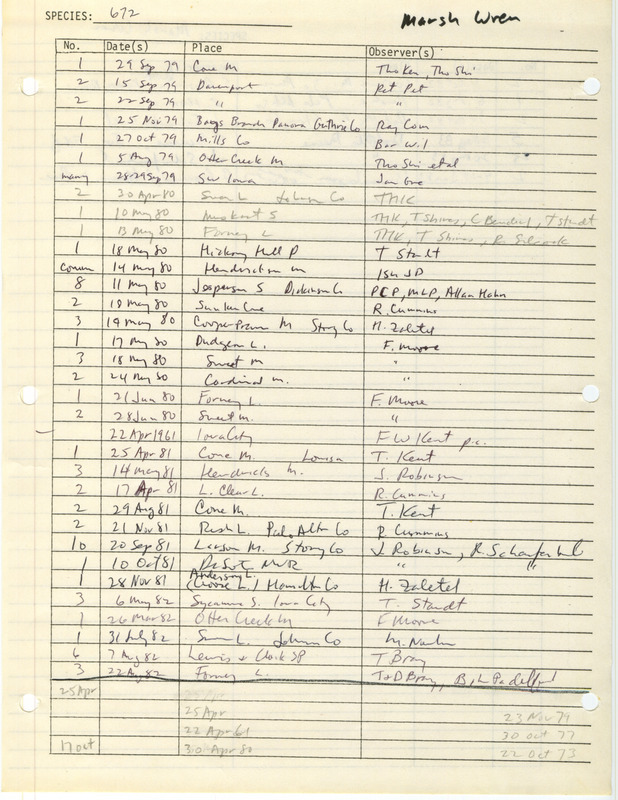 SPECIES: 672 Marsh Wren
No. Date(s) Place Observer(s)
1 29 Sep 79 Cone M ThoKen, ThoShi
2 15 Sep 79 Davenport Pet Pet
2 22 Sep 79 " "
1 25 Nov 79 Bays Branch Panora Guthrie Co Ray Com
1 27 Oct 79 Mills Co Bar Wil
1 5 Aug 79 Otter Creek M ThoShi etal
many 28-29 Sep 79 SW Iowa
2 30 Apr 80 Swan L Johnson Co THK
1 10 May 80 Muskrat S THK, T Shires, C Bendorf, T Staudt
1 13 May 80 Forney L THK, T Shires, R
1 18 May 80 Hickory Hill P T Staudt
comm 14 May 80 Hendrickson M
8 11 May 80 Jesperson S Dickinson Co PCP, MLP, Allan Hahn
2 18 May 80 Sunken Grove R. Cummins
3 19 May 80 Cooper Prairie M Story Co H. Zaletel
1 17 May 80 Dudgeon L. F. Moore
3 18 May 80 Sweet M "
2 24 May 80 Cardinal M. "
1 21 Jun 80 Forney L F. Moore
2 28 Jun 80 Sweet M. "
22 Apr 1961 Iowa City F W Kent p.c.
1 25 Apr 81 Cone M. Louisa T. Kent
3 14 May 81 Hendricks M. J. Robinson
2 17 Apr 81 L. Clear L. R. Cummins
2 29 Aug 81 Cone M. T. Kent
2 21 Nov 81 Rush L. Palo Alto Co R Cummins
10 20 Sep 81 Larson M. Story Co J. Robinson, R. Schaufenbuel
1 10 Oct 81 DeSoto NWR " "
1 28 Nov 81 Anderson L. (Goose L.) Hamilton Co H. Zaletel
3 6 May 82 Sycamore S. Iowa City T. Staudt
1 26 Mar 82 Otter Creek M F Moore
1 31 July 82 Swan L. Johnson Co
6 7 Aug 82 Lewis & Clark SP T Bray
3 22 Aug 82 Forney L. T+D Bray, B, L Padelford
25 Apr
25 Apr 23 Nov 79
22 Apr 61 30 Oct 77
17 Oct 30 Apr 80 22 Oct 73